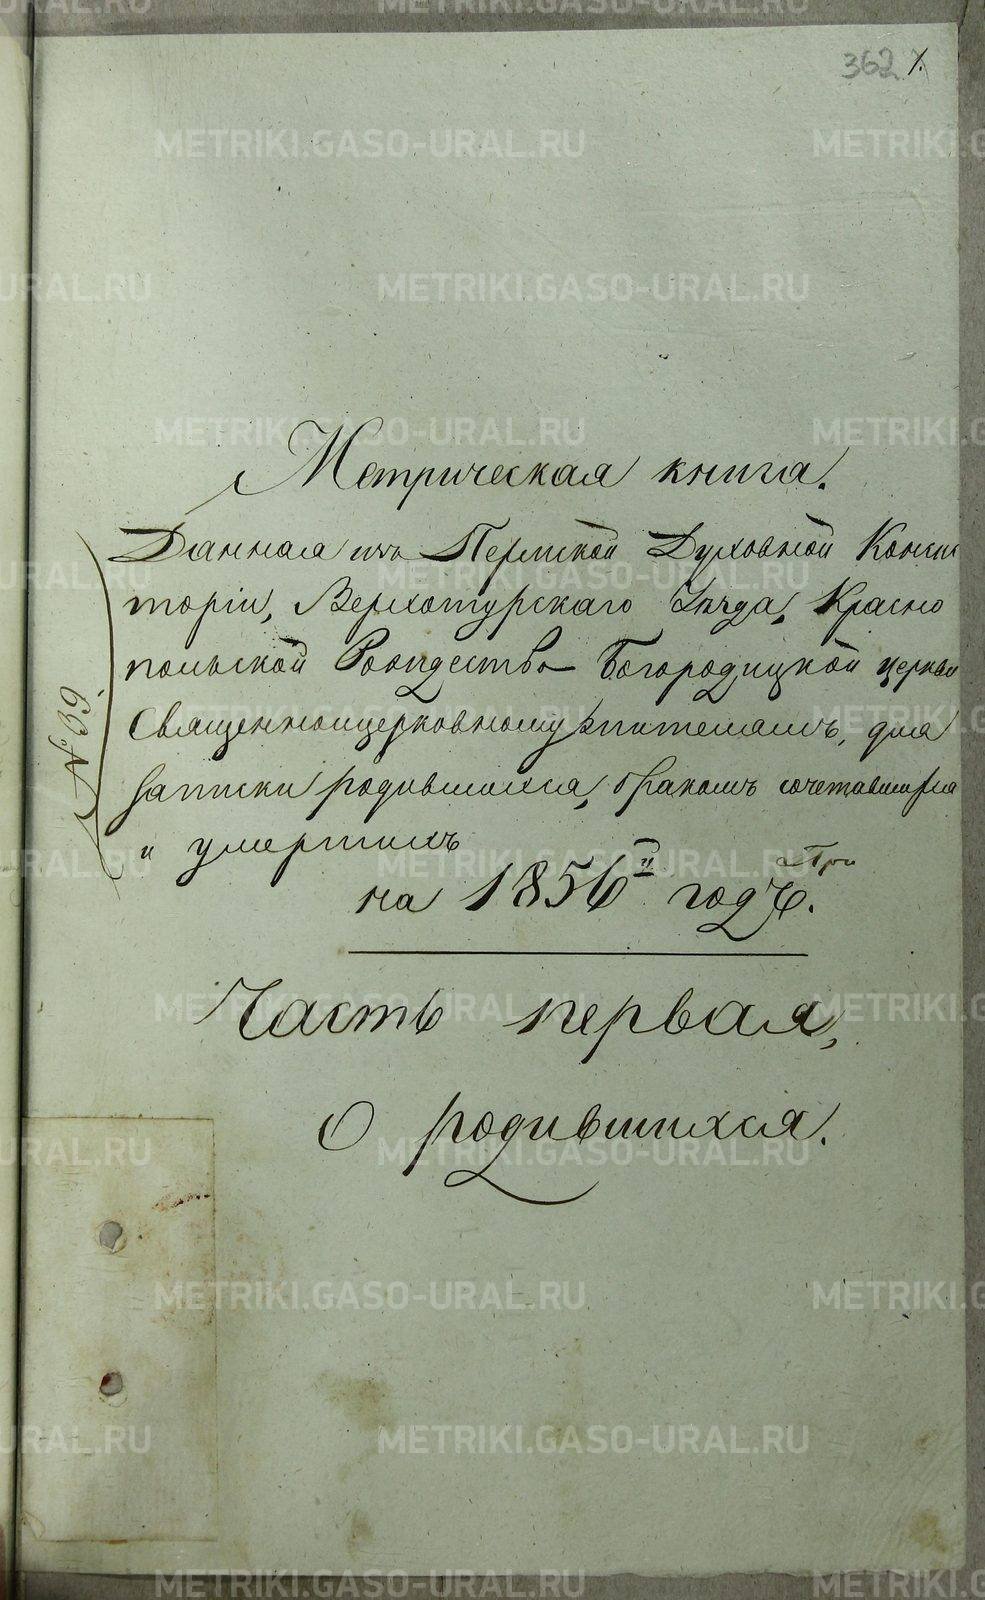 362 1.
Метрическая книга.
Данная изъ Пермской Духовной Консис
торіи, Верхотурскаго Уѣзда, Красно
польской Рождество Богородицкой церкви
Священноицерковнослужителямъ, для
записки родившихся, бракомъ сочетавшихся
и умершихъ
на 1856й годъ. При
Часть первая,
О родившихся.
№ 39.
METRIKI.GASO-URAL.RU